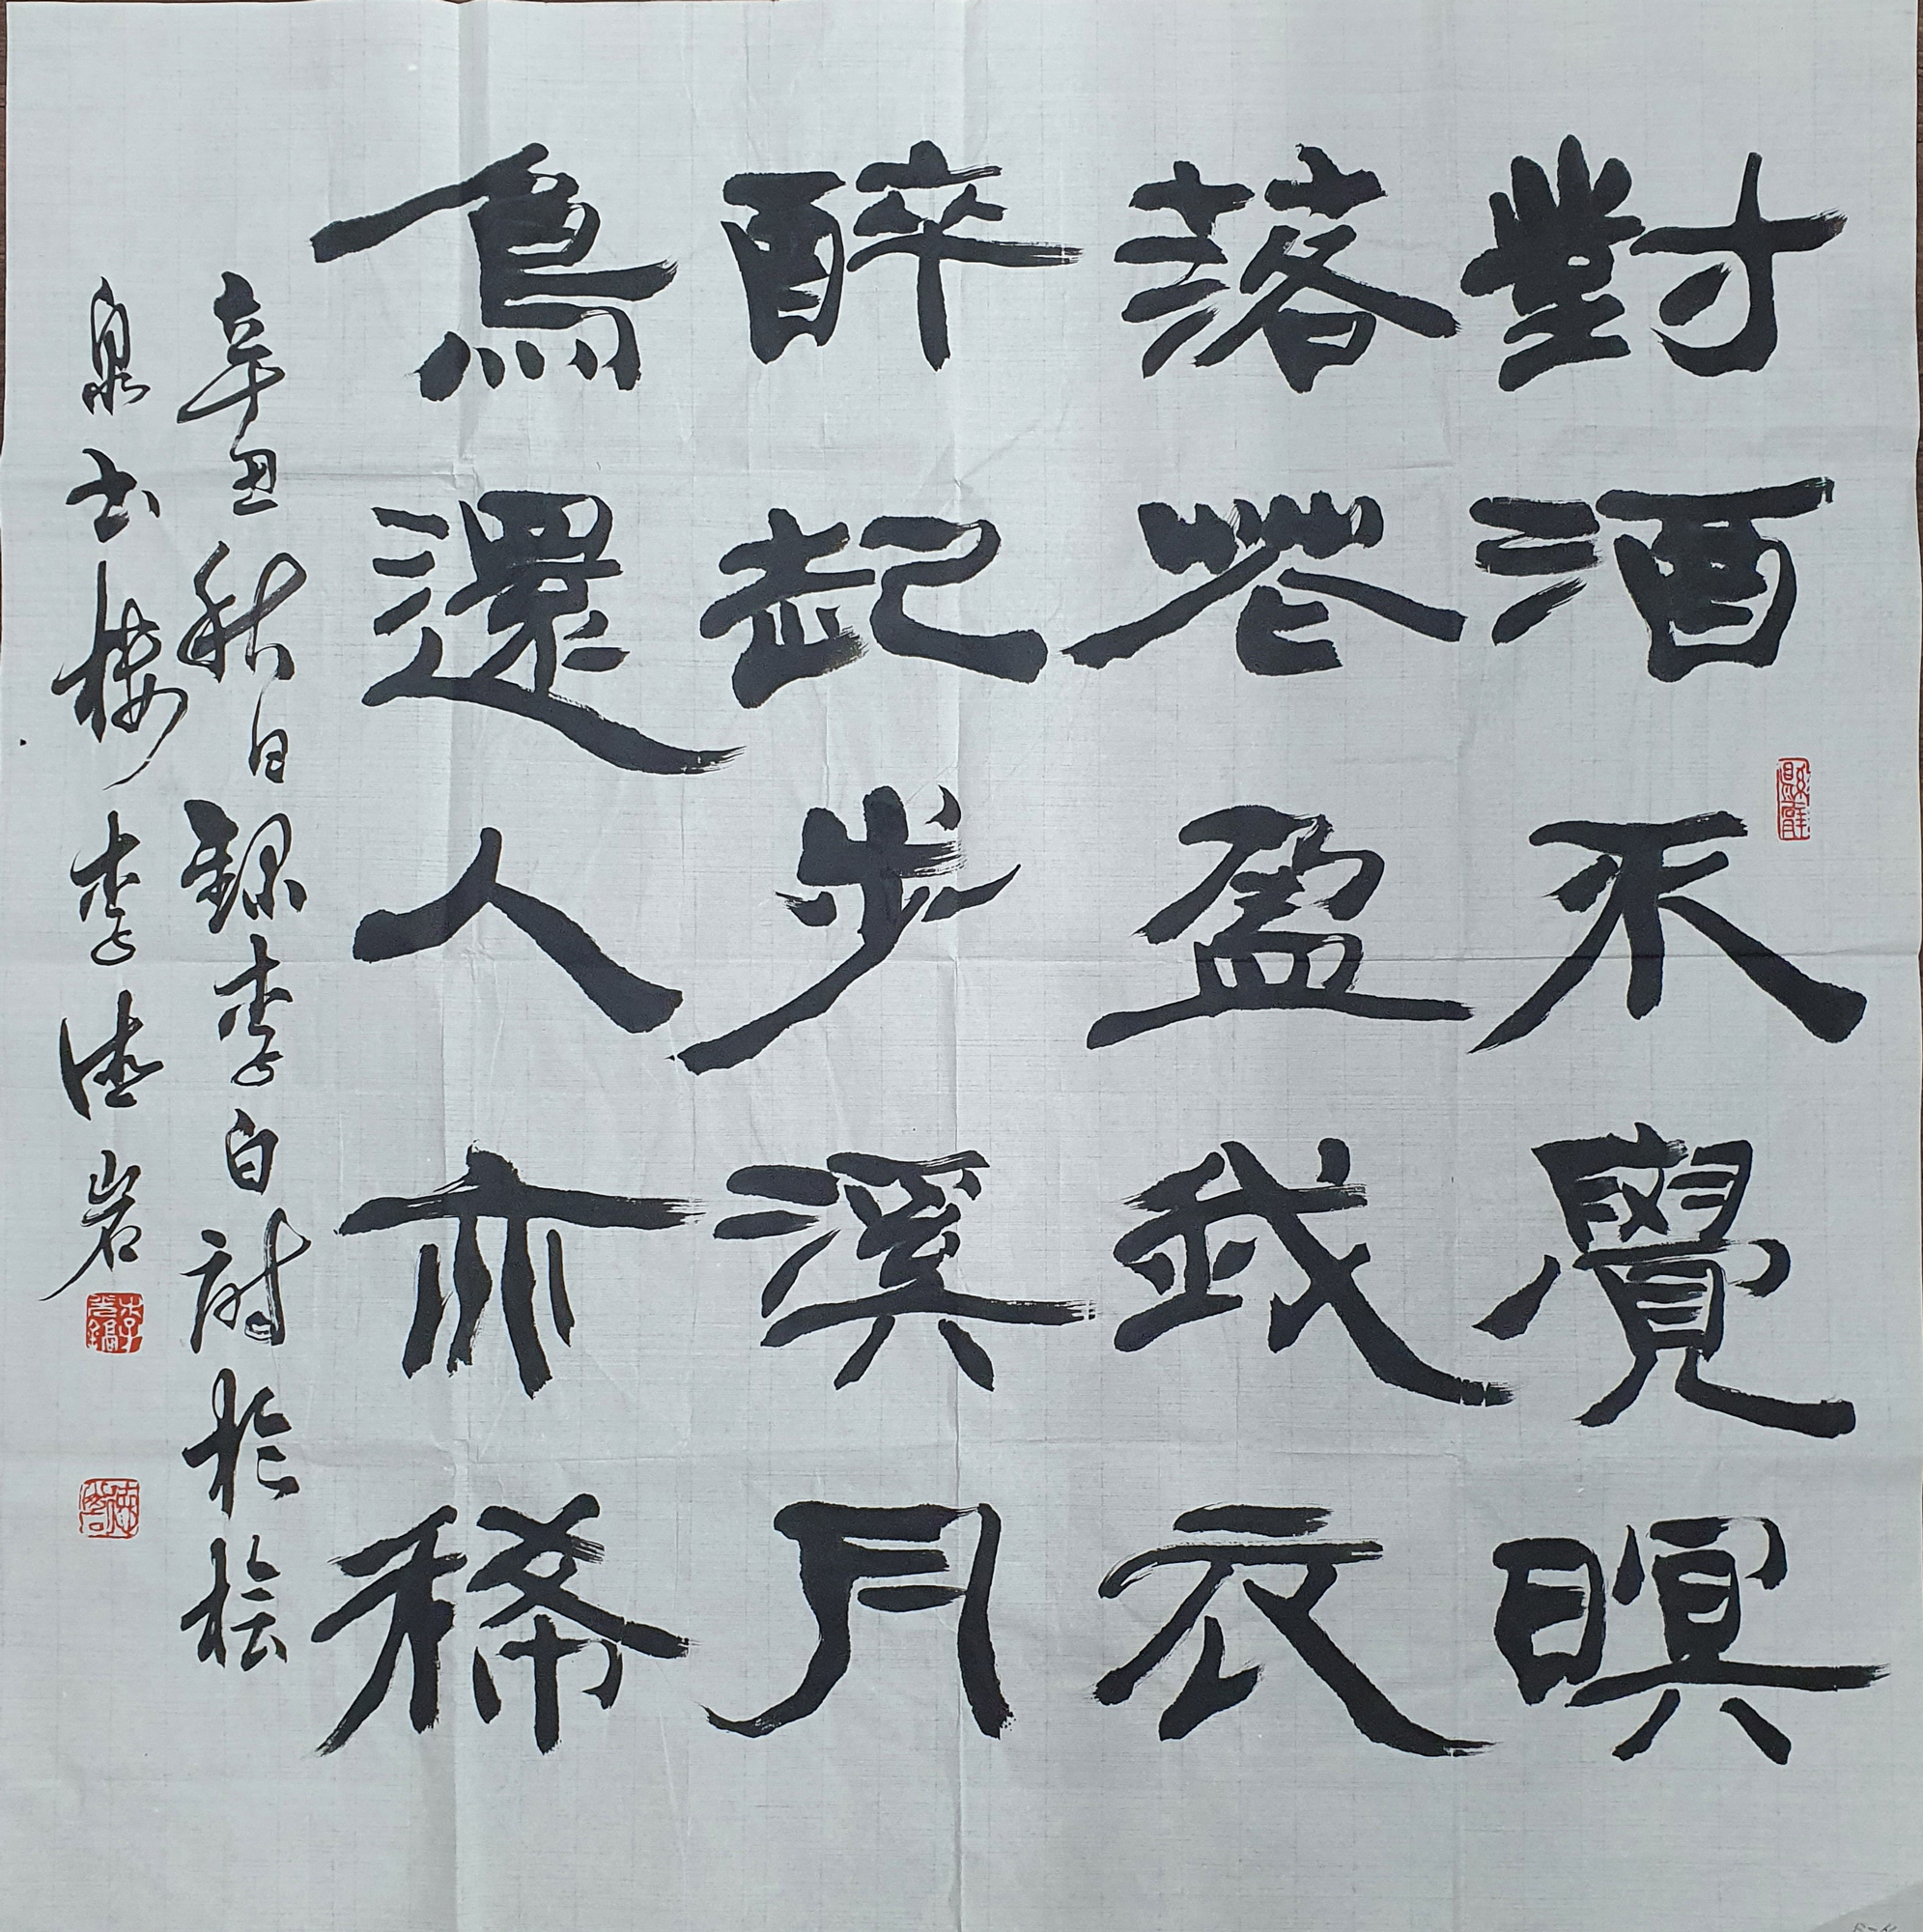 對酒不覺暝
落花盈我衣
醉起步溪月
鳥還人亦稀
辛丑秋日録李白詩於桧
泉書樓李德岩